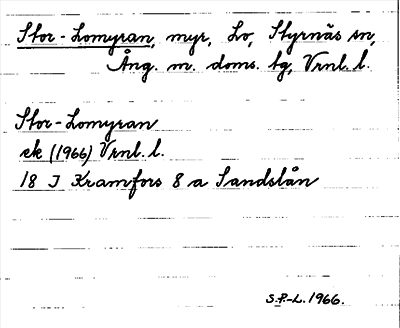 Stor-Lomyran, myr, Lo, Styrnäs sn,
Ång. m. doms. tg, Vrnl. l.
Stor-Lomyran
ek (1966) Vrnl. l.
18 I Kramfors 8 a Sandslån
S.P-L. 1966.